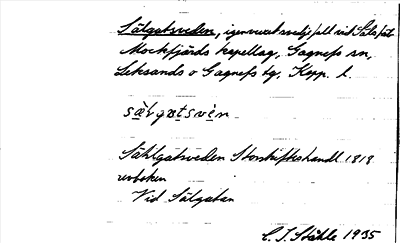 Sälgatsveden, igenvuxet svedjefall vid Säls fäb.
Mockfjärds kapellag, Gagnefs sn,
Leksands o Gagnefs tg, Kopp. l.
sälgatsve`n
Sählgatsveden Storskifteshandl. 1818
Vid Sälgatan
C. I. Ståhle 1935